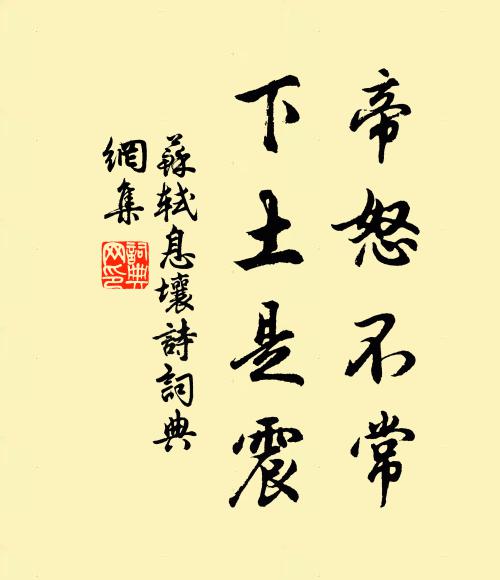 帝怒不常
下土是震
蘇軾息壤詩詞典
網集
詞典
网印